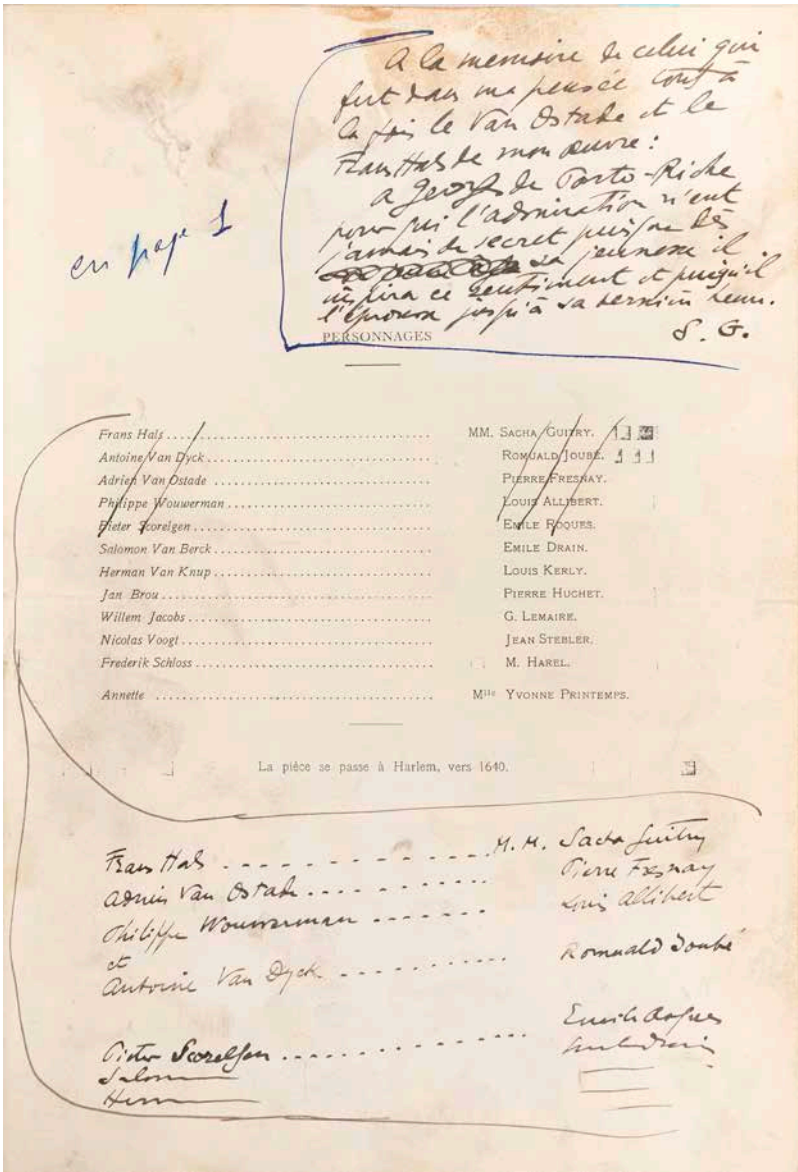 A la memoire de celui qui
fut dans ma pensée tout à
la fois le Van Ostade et le
Frans Hals de mon œuvre :
a Georges de Porto-Riche
pour qui l'admiration n'eut
jamais de secret puisque dès
sa jeunesse il
inspira ce sentiment et puisqu'il
l'éprouva jusqu'à sa dernière heure.
S. G.
en page 1
PERSONNAGES
Frans Hals .................... MM. SACHA GUITRY.
Antoine Van Dyck .................... ROMUALD JOUBÉ.
Adrien Van Ostade .................... PIERRE FRESNAY.
Philippe Wouwerman .................... LOUIS ALLIBERT.
Pieter Scorelgen .................... EMILE ROQUES.
Salomon Van Berck .................... EMILE DRAIN.
Herman Van Knup .................... LOUIS KERLY.
Jan Brou .................... PIERRE HUCHET.
Willem Jacobs .................... G. LEMAIRE.
Nicolas Voogt .................... JEAN STEBLER.
Frederik Schloss .................... M. HAREL.
Annette .................... Mlle YVONNE PRINTEMPS.
La pièce se passe à Harlem, vers 1640.
Frans Hals - - - - - - - - - - M. M. Sacha Guitry
Adrien Van Ostade - - - - - - - - Pierre Fresnay
Philippe Wouwerman - - - - - - Louis Allibert
et
Antoine Van Dyck - - - - - - - - Romuald Joubé
Pieter Scorelgen - - - - - - - - - - Emile Roques
Salom Emile Drain
Herm